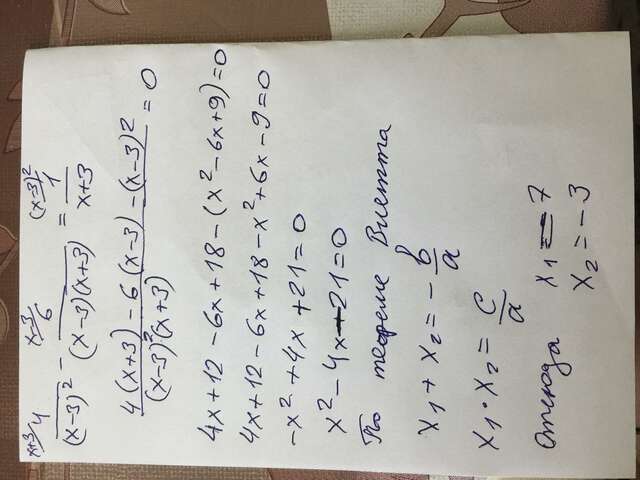 x+3/ 4/(x-3)² - x-3/ 6/((x-3)(x+3)) = (x-3)²/ 1/(x+3)
(4(x+3) - 6(x-3) - (x-3)²)/((x-3)²(x+3)) = 0
4x+12-6x+18-(x²-6x+9)=0
4x+12-6x+18-x²+6x-9=0
-x²+4x+21=0
x²-4x-21=0
По теореме Виетта
x₁+x₂=-b/a
x₁·x₂=c/a
Отсюда x₁=7
x₂=-3